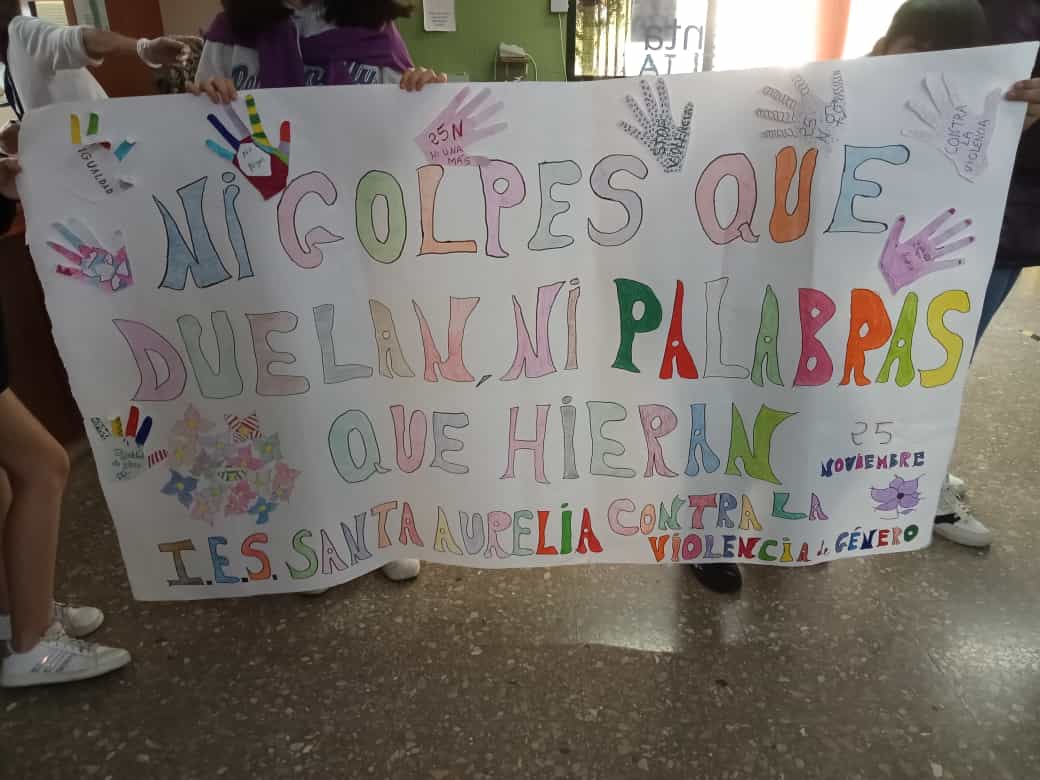 NI GOLPES QUE
DUELAN, NI PALABRAS
QUE HIERAN
25
NOVIEMBRE
I.E.S. SANTA AURELIA CONTRA LA
VIOLENCIA de GÉNERO
IGUALDAD
25N
NI UNA
MÁS
CONTRA
LA
VIOLENCIA